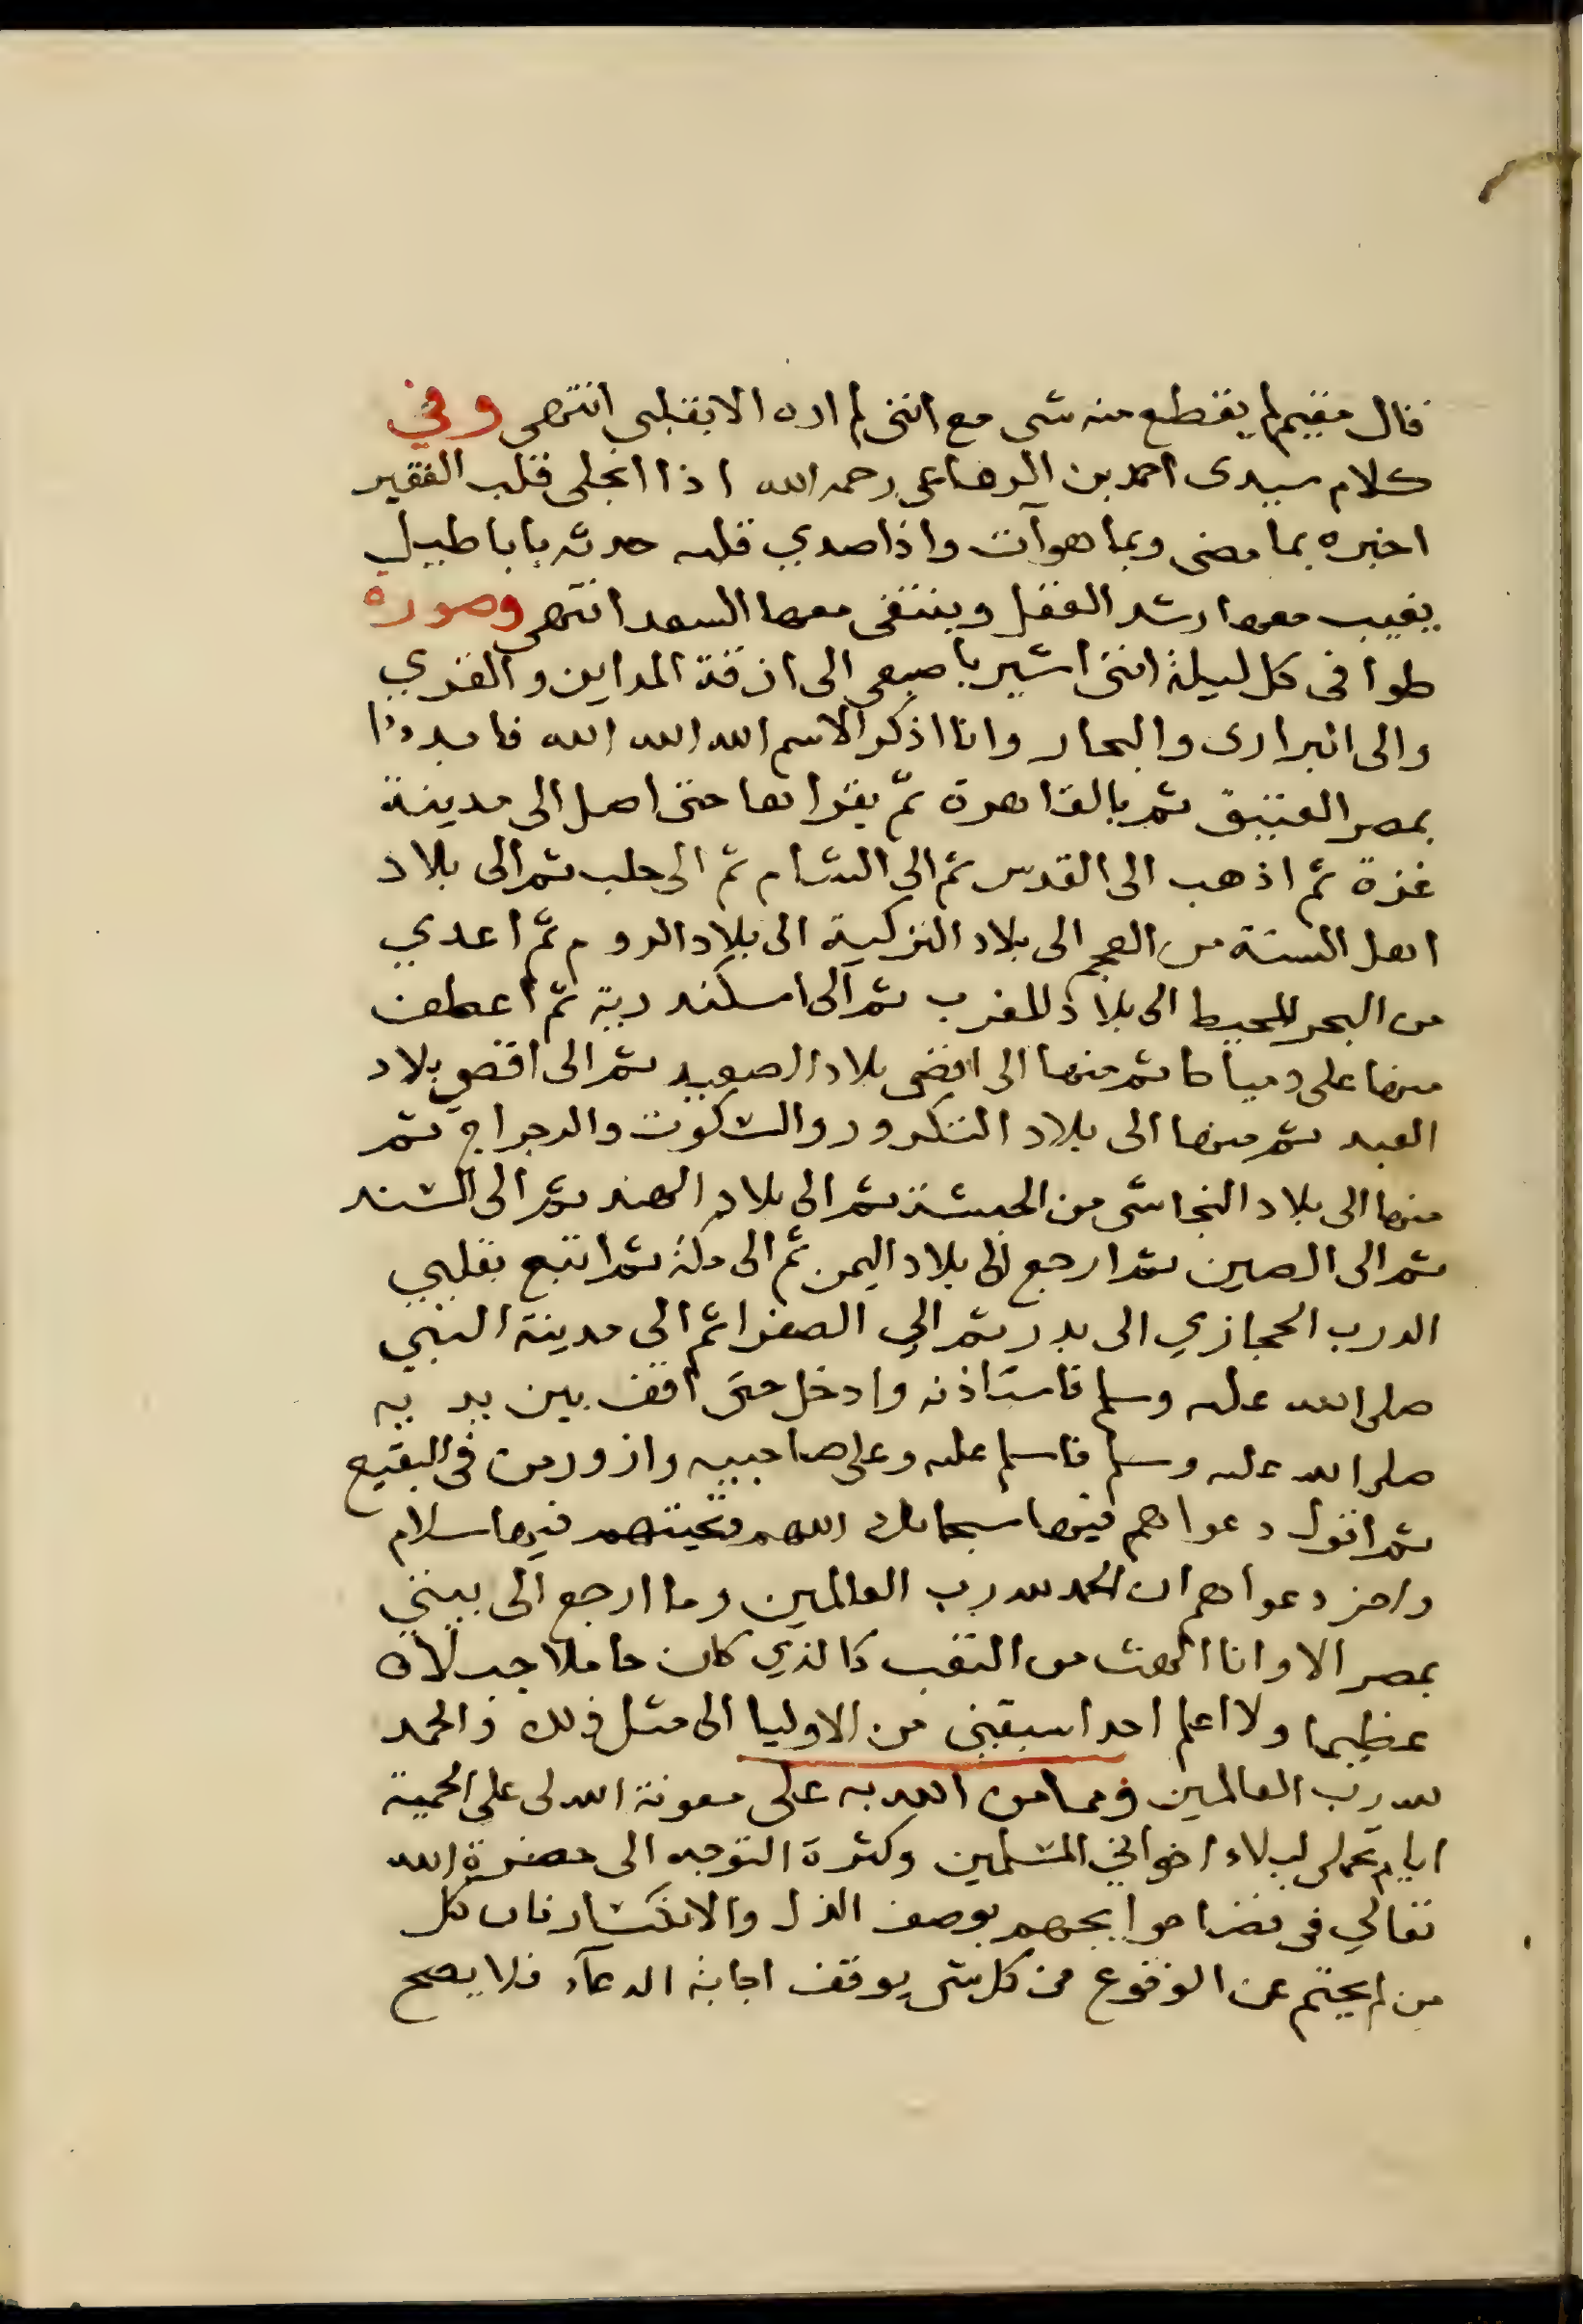 فقال مقيم لم يقطع منه شى مع انني لم اره الا بقلبي انتهى وفي
كلام سيدى احمد بن الرفاعى رحمه الله اذا انجلى قلب الفقير
اخبره بما مضى وبما هو آت واذا صدي قلبه حدثه باباطيل
يغيب معها رشد العقل وينتفى معها السعد انتهى وصورة
طوافى كل ليلة اننى اشير باصبعى الى ازقة المداين والقري
والى البرارى والبحار وانا اذكر الاسم الله الله الله فابدءا
بمصر العتيق ثم بالقاهرة ثم بقراها حتى اصل الى مدينة
غزة ثم اذهب الى القدس ثم الي الشام ثم الى حلب ثم الى بلاد
اهل السنة من العجم الى بلاد التركية الى بلاد الروم ثم اعدي
من البحر المحيط الى بلاد المغرب ثم الى اسكندرية ثم اعطف
منها على دمياط ثم منها الى اقصى بلاد الصعيد ثم الى اقصي بلاد
العبد ثم منها الى بلاد التكرور والشكوت والدجراج ثم
منها الى بلاد النجاشى من الحبشة ثم الى بلاد الهند ثم الى السند
ثم الى الصين ثم ارجع الى بلاد اليمن ثم الى مكة ثم اتبع بقلبي
الدرب الحجازي الى بدر ثم الي الصفرا ثم الى مدينة النبي
صلى الله عليه وسلم فاستاذنه وادخل حتى اقف بين يديه
صلى الله عليه وسلم فاسلم عليه وعلى صاحبيه وازور من فى البقيع
ثم اقول دعواهم فيها سبحانك اللهم وتحيتهم فيها سلام
واخر دعواهم ان الحمد لله رب العالمين وما ارجع الى بيتي
بمصر الا وانا الهث من التعب كالذي كان حاملا جبلا
عظيما ولا اعلم احدا سبقني من الاوليا الى مثل ذلك والحمد
لله رب العالمين ومما من الله به على معونة الله لى على الحمية
ايام تحملى لبلاء اخواني المسلمين وكثرة التوجه الى حضرة الله
تعالي فى قضا حوايجهم بوصف الذل والانكسار فان كل
من لم يحتم عن الوقوع فى كل شى يوقف اجابة الدعآء فلا يصح